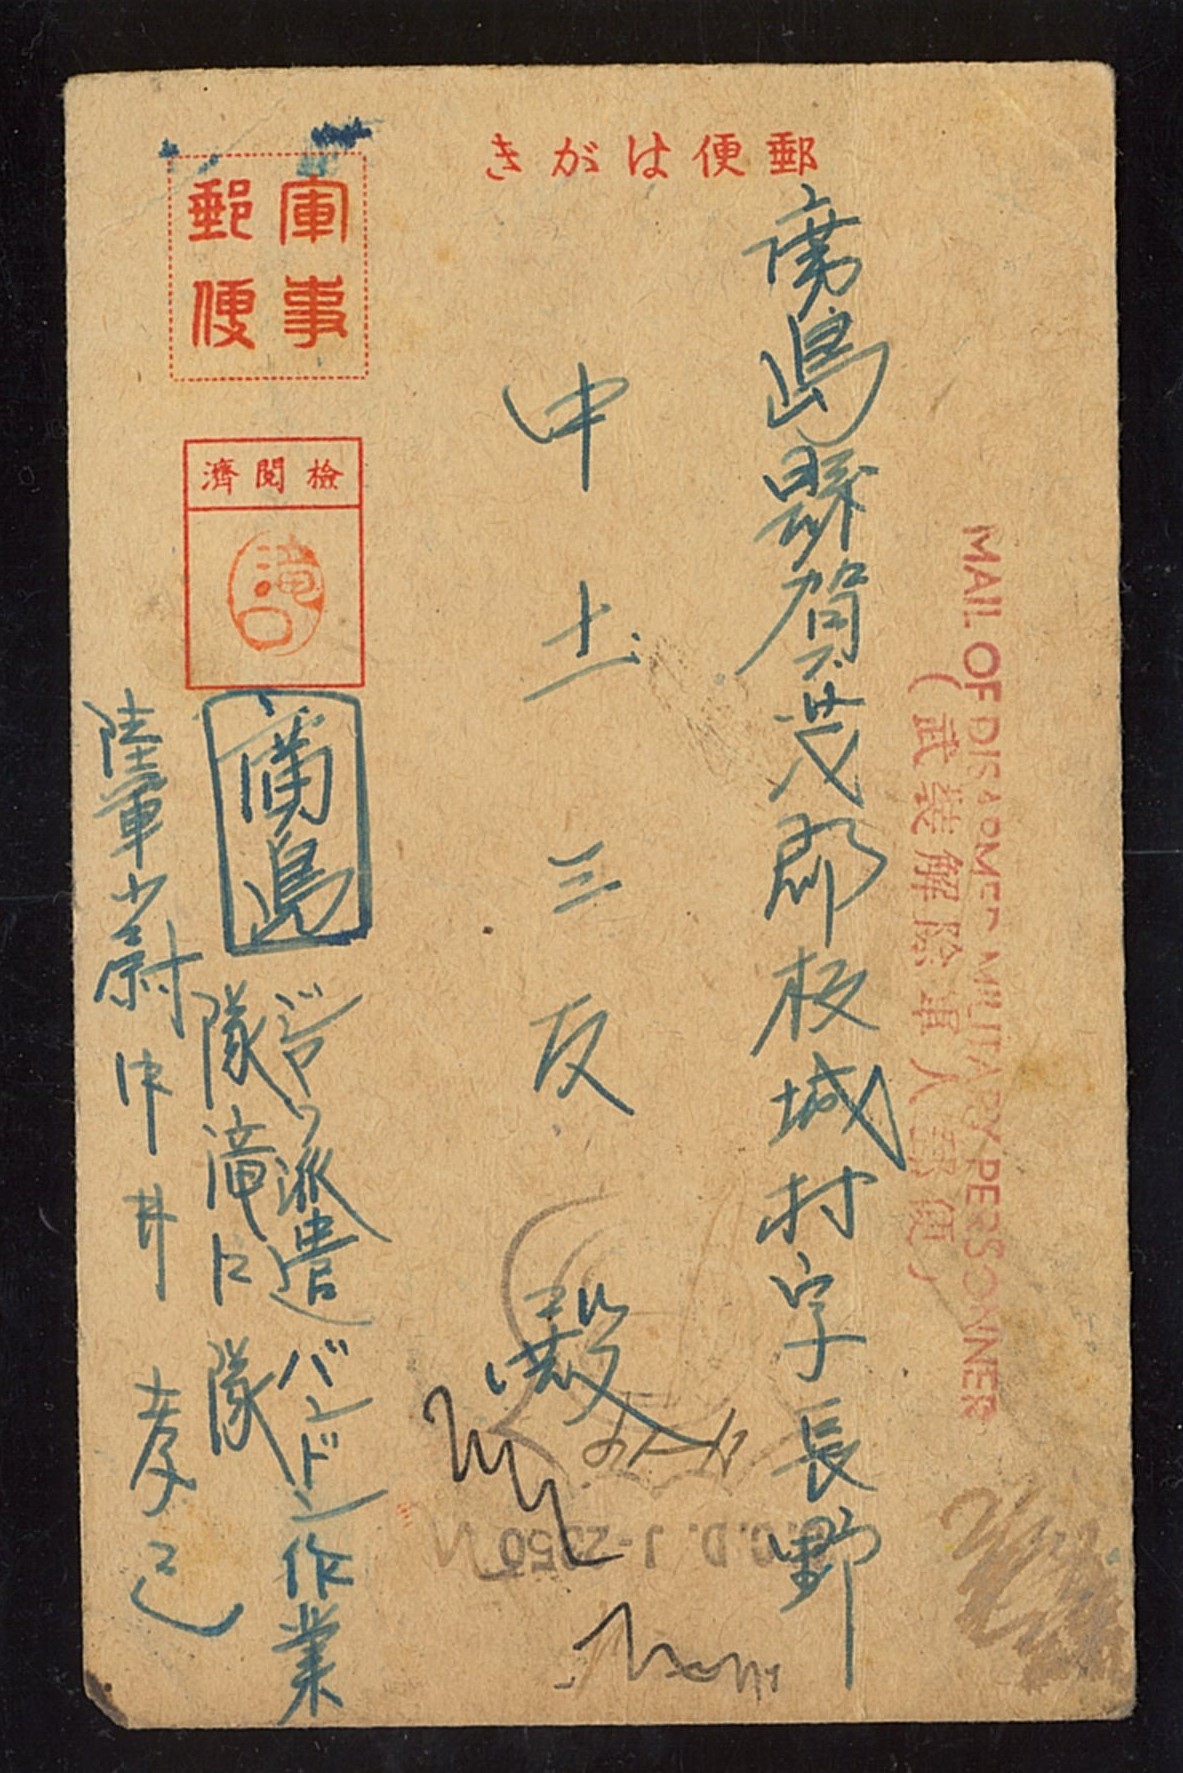 郵便はがき
軍事
郵便
檢閱濟
滝口
廣島縣賀茂郡板城村字長野
中土三反殿
MAIL OF DISARMED MILITARY PERSONNEL
(武装解除軍人郵便)
廣島
ジャワ派遣バンドン作業
隊滝口隊
陸軍少尉中井孝己
C.C.D. J-2250